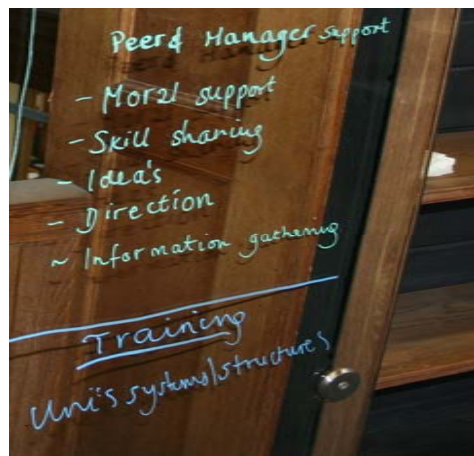 Peer & Manager support
- Moral support
- Skill sharing
- Idea's
- Direction
~ Information gathering
Training
Uni's systems/structures